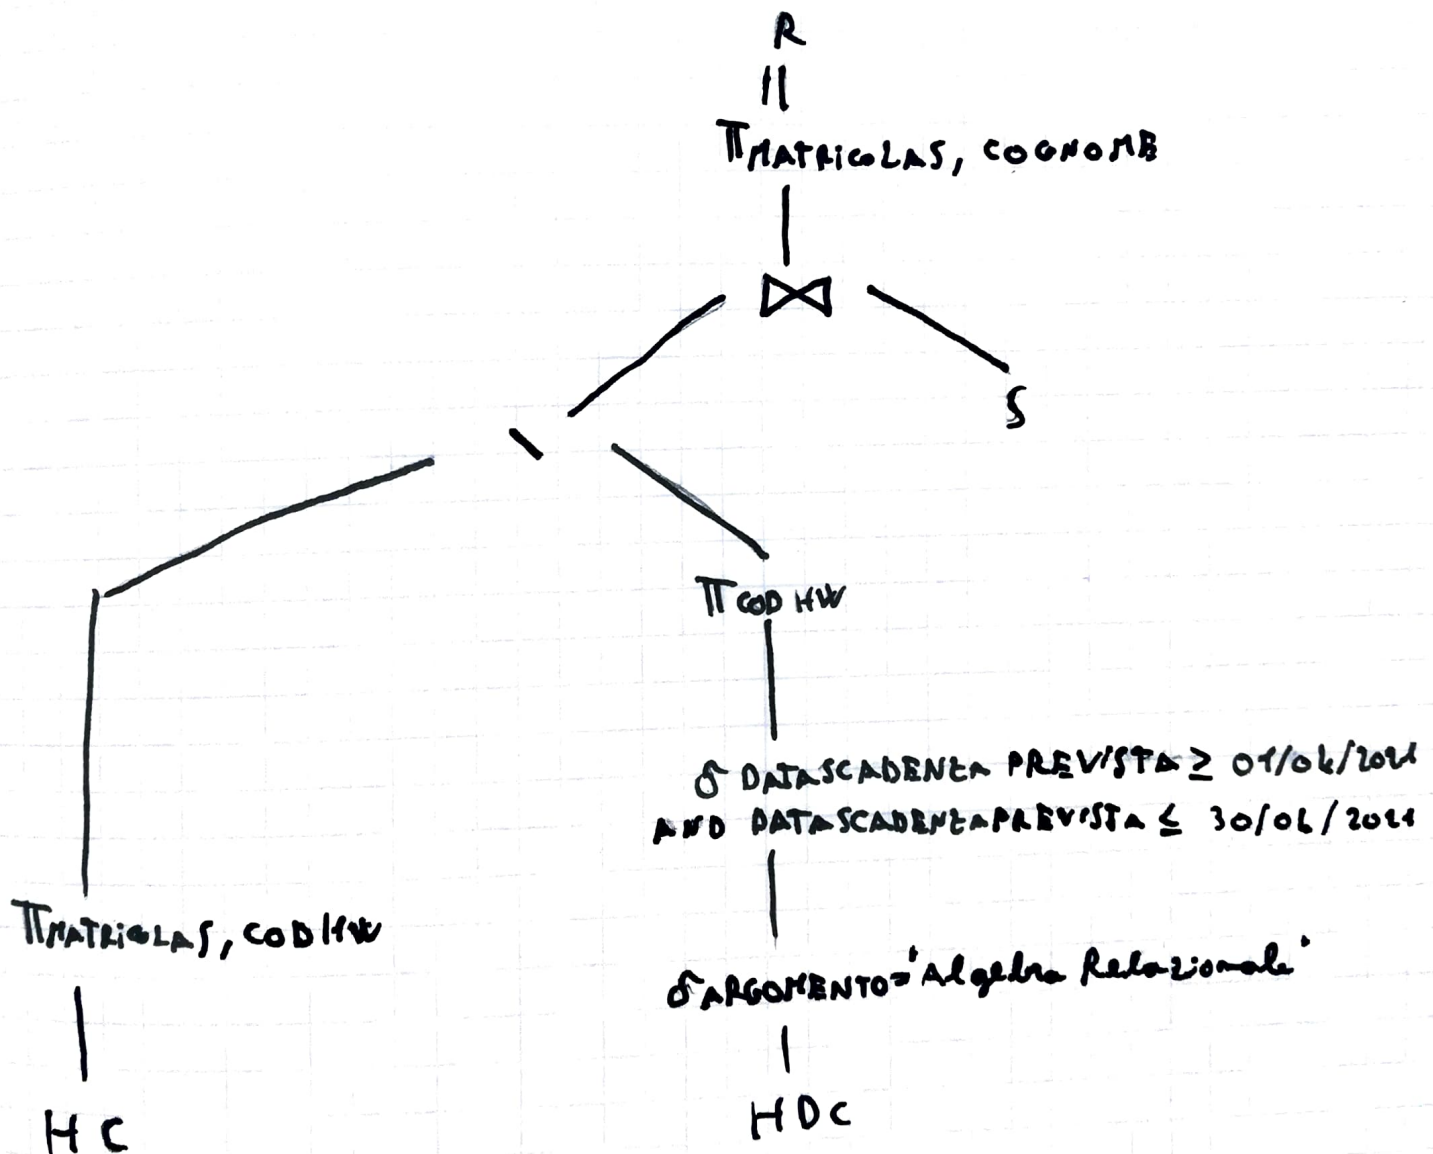 R
||
π MATRICOLAS, COGNOME
⋈
S
\
π COD HW
σ DATASCADENZA PREVISTA ≥ 01/04/2021
AND DATASCADENZAPREVISTA ≤ 30/06/2021
π MATRICOLAS, CODHW
σ ARGOMENTO='Algebra Relazionale'
HC
HDC